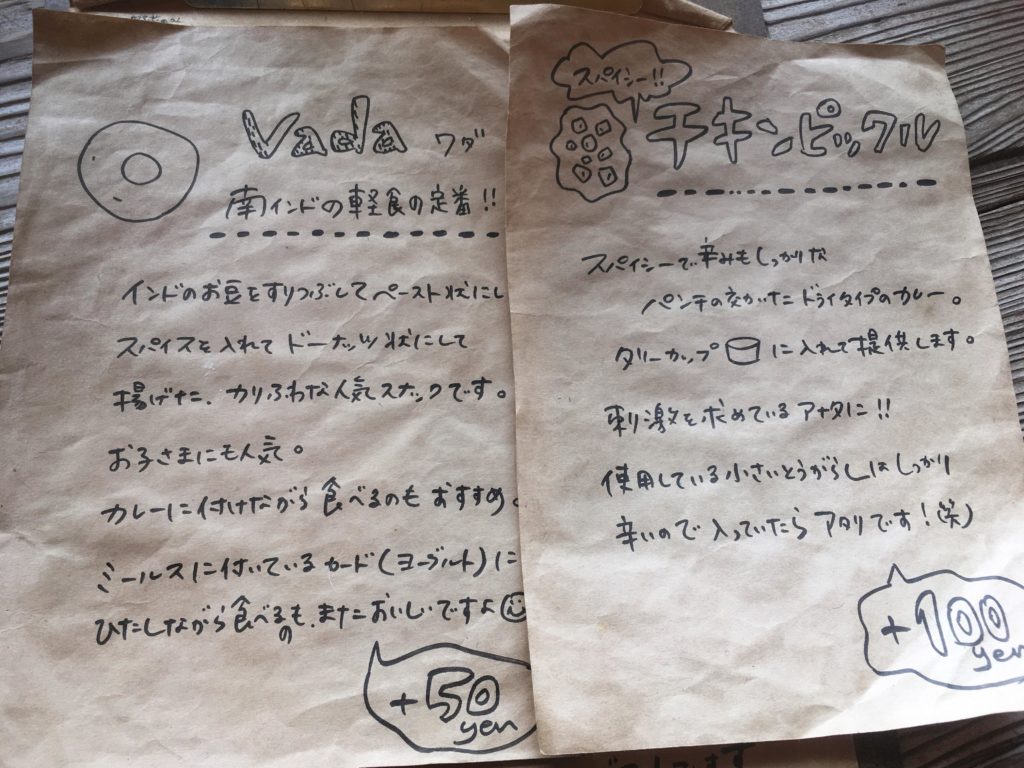 Vada ワダ
南インドの軽食の定番!!
インドのお豆をすりつぶしてペースト状にし
スパイスを入れてドーナッツ状にして
揚げた、カリふわな人気スナックです。
お子さまにも人気。
カレーに付けながら食べるのもおすすめ。
ミールスに付いているカード(ヨーグルト)に
ひたしながら食べるのも、またおいしいですよ
+50
yen
スパイシー!!
チキンピックル
スパイシーで辛みもしっかりな
パンチの効いたドライタイプのカレー。
タリーカップ に入れて提供します。
刺激を求めているアナタに!!
使用している小さいとうがらしはしっかり
辛いので入っていたらアタリです!(笑)
+100
yen